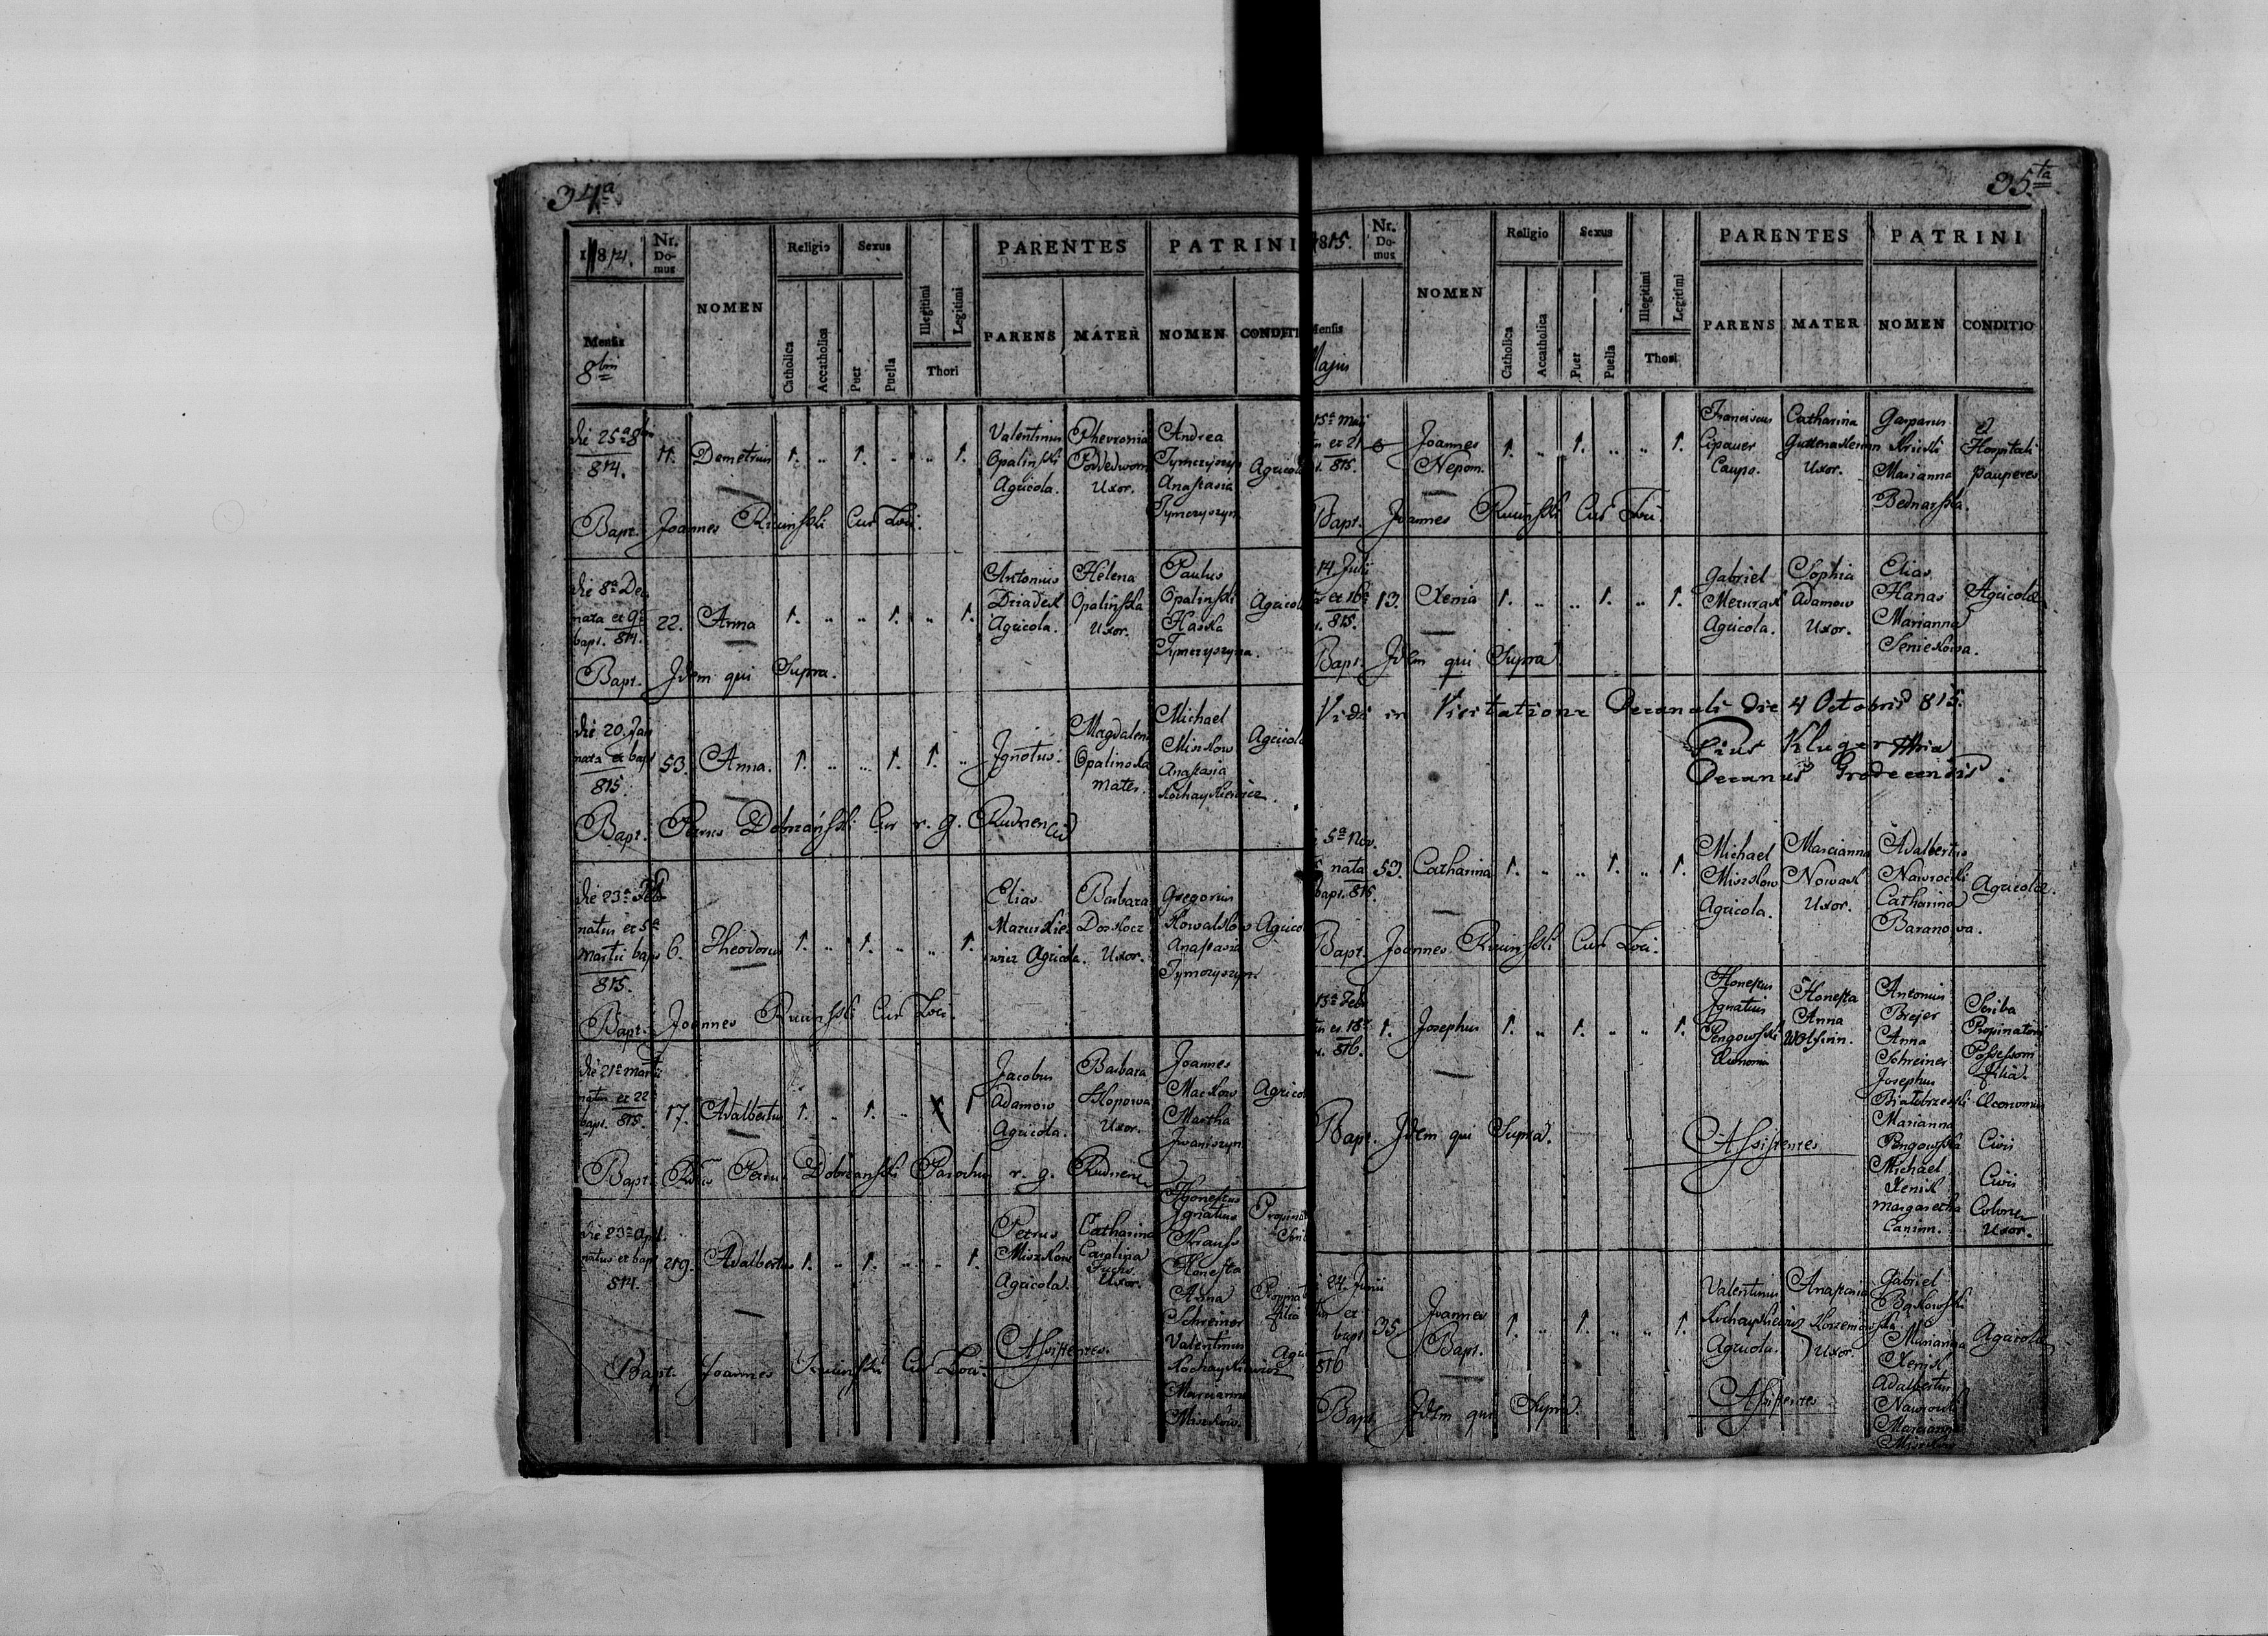 34ª
1814.
Nr. Domus
NOMEN
Religio
Sexus
PARENTES
PATRINI
Mensis
8bris
Catholica
Accatholica
Puer
Puella
Illegitimi
Legitimi
Thori
PARENS
MATER
NOMEN
CONDITI
die 25ª 8bris
814.
11.
Demetrius
1. .. 1. .. .. 1.
Valentinus
Opalinski
Agricola.
Phevronia
Uxor.
Andrea
Tymczyszyn
Anastasia
Tymczyszyn
Agricola
Bapt. Joannes Cur Loci.
die 8ª Dec
nata et 9ª
bapt. 814.
22.
Anna
1. .. .. 1. .. 1.
Antonius
Dziadek
Agricola.
Helena
Opalinska
Uxor.
Paulus
Opalinski
Haska
Tymczyszyna.
Agricol
Bapt. Idem qui Supra.
die 20. Jan
nata et bapt
815.
53.
Anna.
1. .. .. 1. 1. ..
Ignotus.
Magdalena
Opalinska
Mater.
Michael
Miszkow
Anastasia
Kochaykiewicz.
Agricol
Bapt. Petrus Dobrzański Cur r. g.
die 23ª Feb
natus et 5ª
Martii bapt
815.
6.
Theodorus
1. .. 1. .. .. 1.
Elias
Mazurkie-
wicz Agricola.
Barbara
Doskocz
Uxor.
Gregorius
Kowalkow
Anastasia
Tymczyszyn.
Agricol
Bapt. Joannes Cur Loci.
die 21ª Martii
natus et 22
bapt. 815.
17.
Adalbertus
1. .. 1. ..
Jacobus
Adamow
Agricola.
Barbara
Uxor.
Joannes
Mackow
Martha
Iwaniszyn
Agricol
Bapt. Petrus Dobrzanski Parochus r. g.
die 23ª Apl.
natus et bapt
814.
219.
Adalbertus
1. .. 1. .. .. 1.
Petrus
Miszkow
Agricola.
Catharina
Carolina
Fuchs.
Uxor.
Honestus
Ignatius
Krauss
Honesta
Anna
Schreiner
Valentinus
Kochaykiewicz
Marianna
Miszkow.
Propinat
filia
Agric
Assistentes.
Bapt. Joannes Cur Loci.
35ta
815.
Nr. Domus
NOMEN
Religio
Sexus
PARENTES
PATRINI
Mensis
Majus
Catholica
Accatholica
Puer
Puella
Illegitimi
Legitimi
Thori
PARENS
MATER
NOMEN
CONDITIO
15ª Maji
et 21
815.
Joannes
Nepom.
1. .. 1. .. .. 1.
Franciscus
Lipauer
Caupo.
Catharina
Uxor.
Gasparus
Marianna
Bednarska.
Hospitali
pauperes
Bapt. Joannes Cur Loci
14 Julii
et 16ª
815.
13.
Xenia
1. .. .. 1. .. 1.
Gabriel
Mazurak
Agricola.
Sophia
Adamow
Uxor.
Elias
Hanas
Marianna
Senikowa.
Agricolae
Bapt. Idem qui Supra
Vidi in Visitatione Decanali die 4 Octobris 815.
Pius Kluger
Decanus Grodecensis.
5ª Nov.
nata
bapt. 815.
53.
Catharina
1. .. .. 1. .. 1.
Michael
Miszkow
Agricola.
Marianna
Nowak
Uxor.
Adalbertus
Nawrocki
Catharina
Baranowa.
Agricolae.
Bapt. Joannes Cur Loci.
15ª Feb
et 18ª
816.
1.
Josephus
1. .. 1. .. .. 1.
Honestus
Ignatius
Pengowski
Honesta
Anna
Antonius
Brejer
Anna
Schreiner
Josephus
Białobrzeski
Marianna
Pengowska
Michael
Xenik
Margaretha
Caninn.
Scriba
Propinatoris
Possessoris
filia.
Oeconomus
Civis
Civis
Uxor.
Assistentes
Bapt. Idem qui Supra.
24 Junii
et
bapt.
816
35
Joannes
Bapt.
1. .. 1. .. .. 1.
Valentinus
Kochaykiewicz
Agricola.
Anastasia
Uxor.
Gabriel
Bąkowski
Marianna
Xenik
Adalbertus
Nawrocki
Marianna
Miszkow
Agricolae
Assistentes
Bapt. Idem qui Supra.